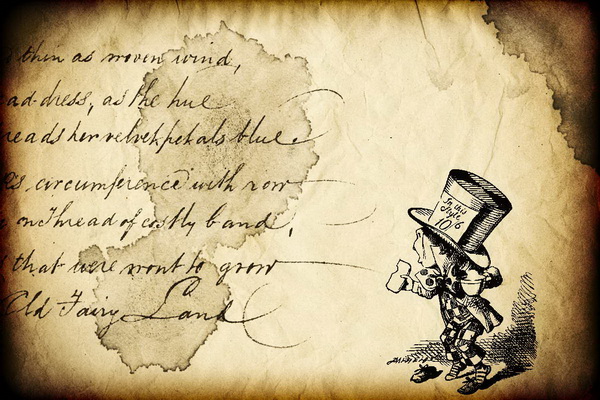 thin as woven wind,
ad-dress, as the hue
reads her velvet petals blue.
circumference with row
on Thread of costly band,
that were wont to grow
Old Fairy Land
In this
Style
10/6